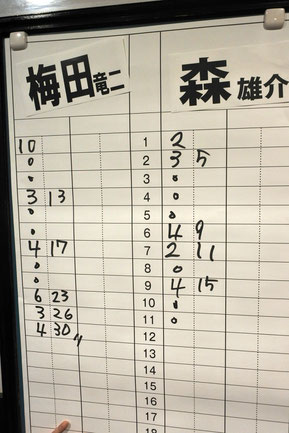 梅田竜二 森雄介
10 1 2
• 2 3 5
• 3 •
3 13 4 •
• 5 •
• 6 4 9
4 17 7 2 11
• 8 •
• 9 4 15
6 23 10 •
3 26 11 •
4 30 〃 12
13
14
15
16
17
18